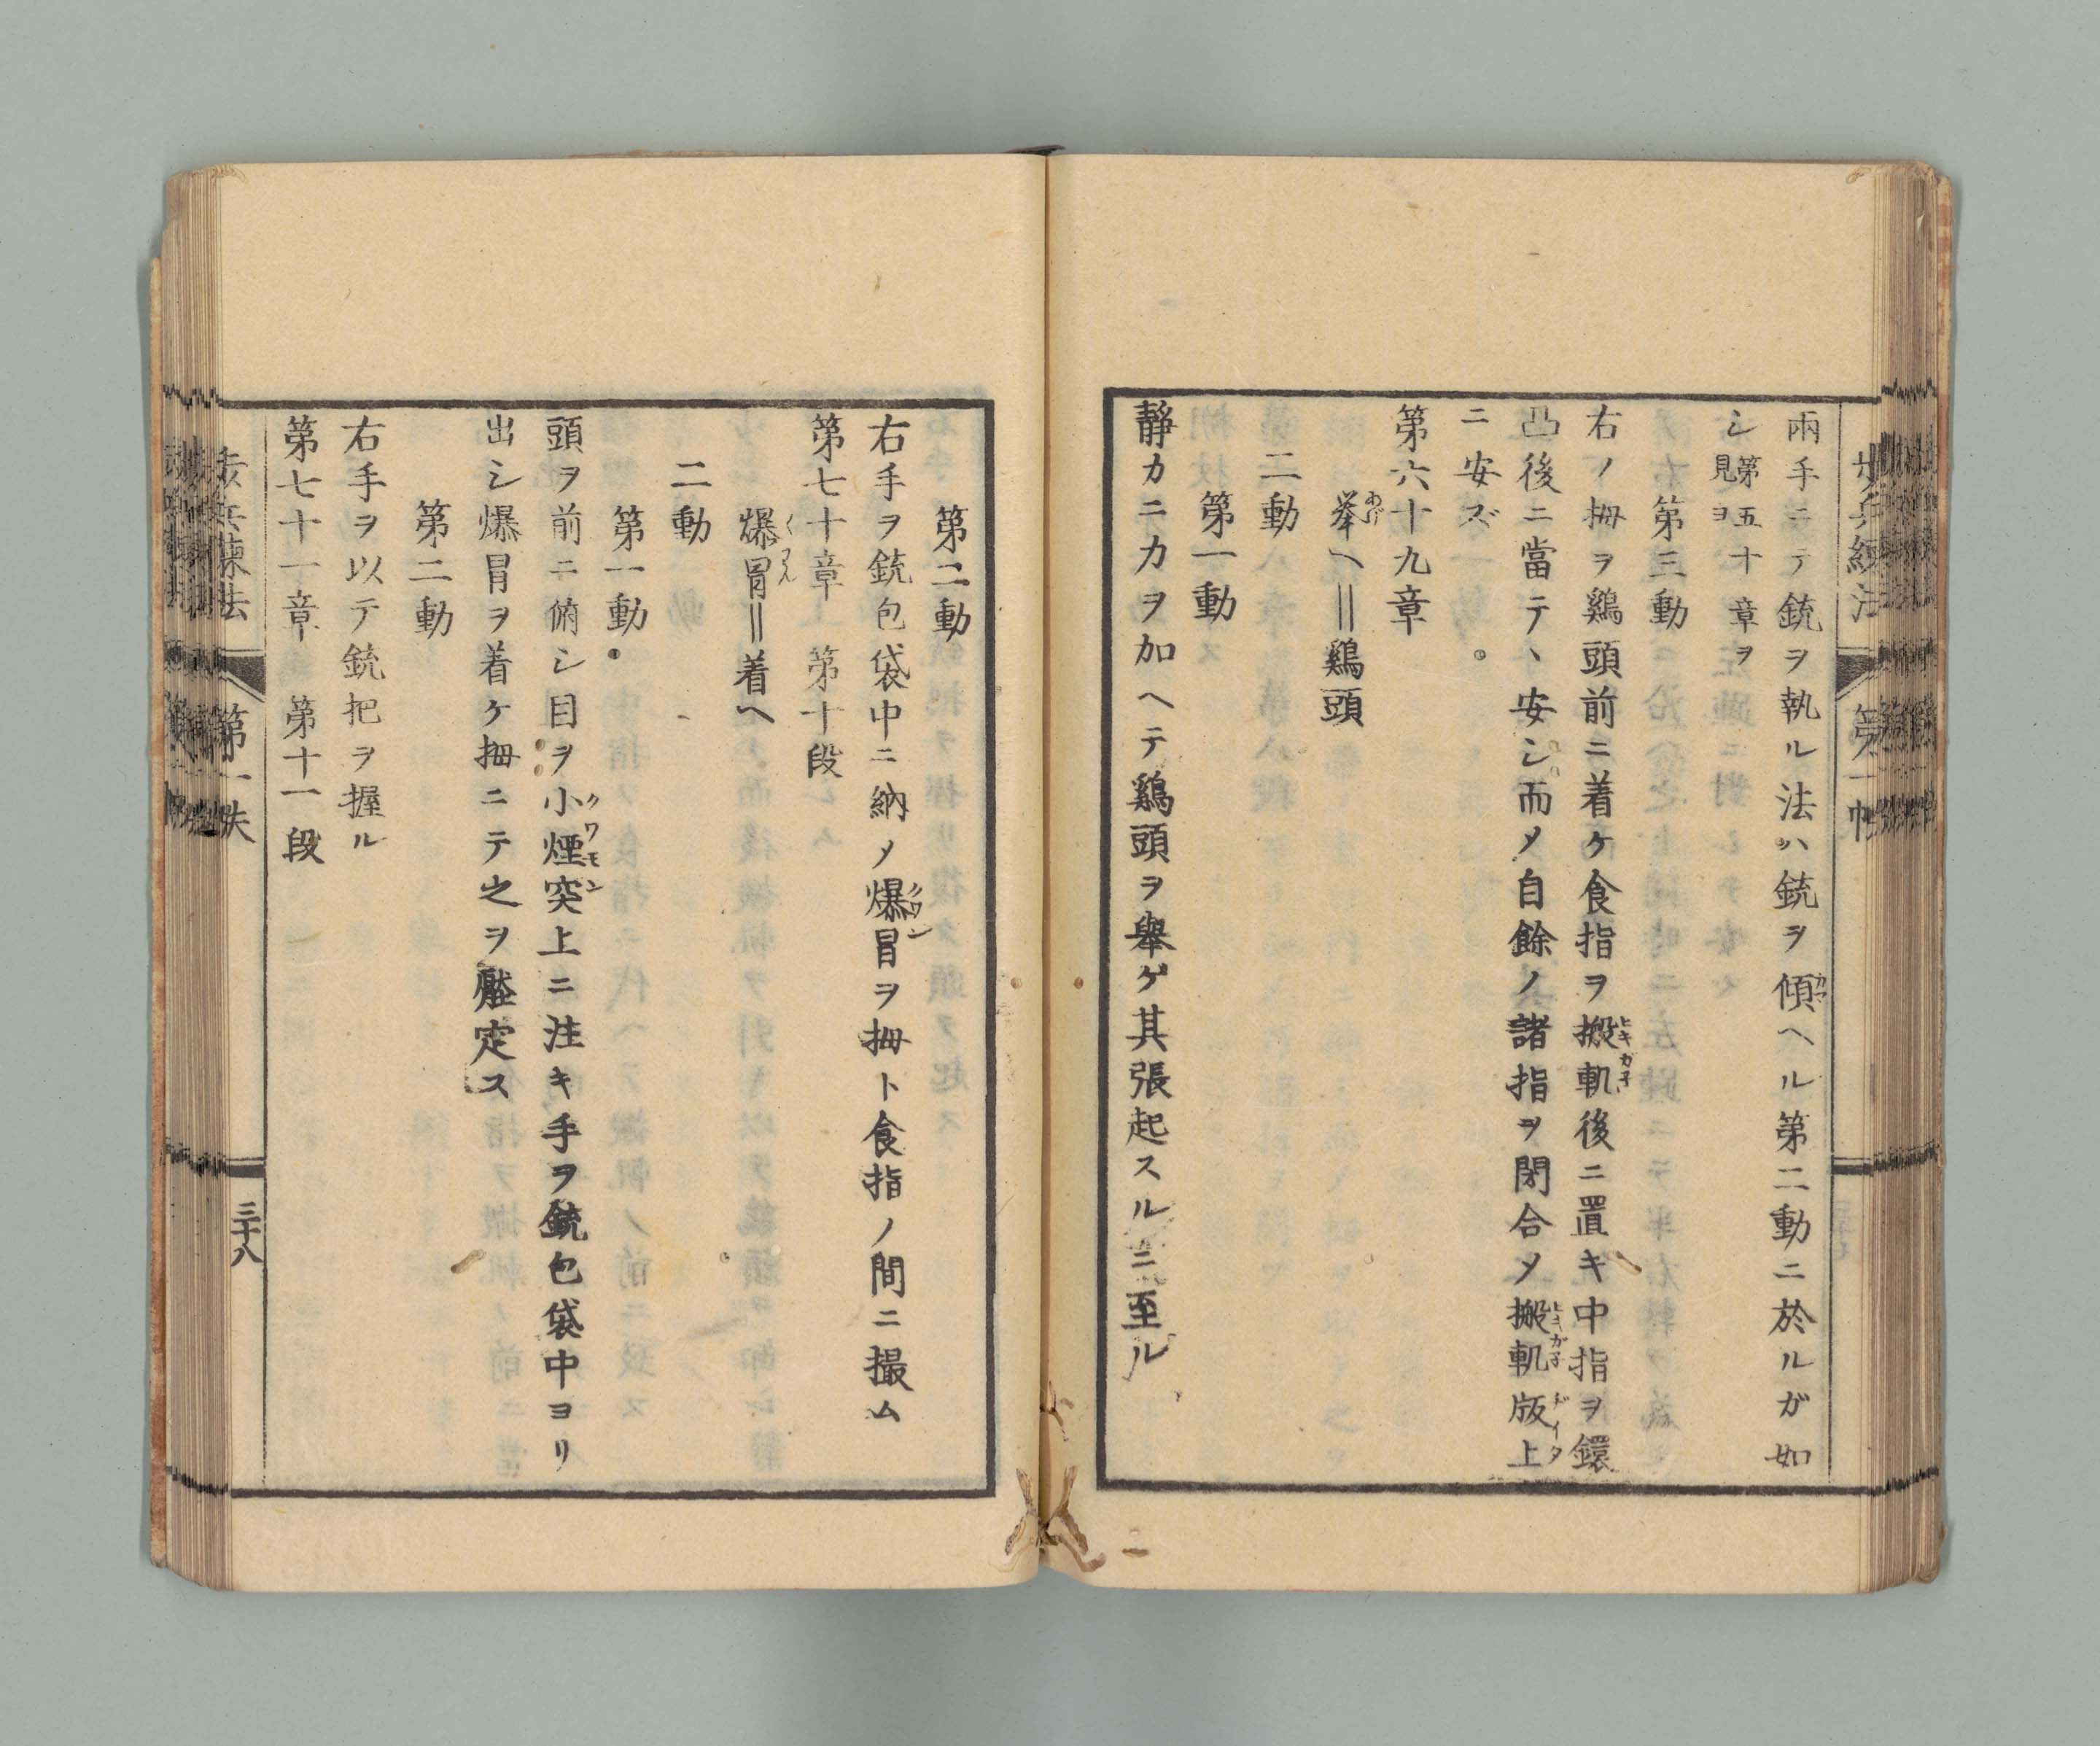 兩手ニテ銃ヲ執ル法ハ銃ヲ傾ヘル第二動ニ於ルガ如
シ第五十章ヲ見ヨ
第三動
右ノ拇ヲ鷄頭前ニ着ケ食指ヲ搬軌後ニ置キ中指ヲ鐶
凸後ニ當テヽ安シ而メ自餘ノ諸指ヲ閉合メ搬軌版上
ニ安ズ。
第六十九章
挙ヘ‖鷄頭
二動
第一動
静カニ力ヲ加ヘテ鷄頭ヲ舉ゲ其張起スルニ至ル
第二動
右手ヲ銃包袋中ニ納ノ爆冒ヲ拇ト食指ノ間ニ撮ム
第七十章 第十段
爆冒‖着ヘ
二動
第一動。
頭ヲ前ニ俯シ目ヲ小煙突上ニ注キ手ヲ銃包袋中ヨリ
出シ爆冒ヲ着ケ拇ニテ之ヲ壓定ス
第二動
右手ヲ以テ銃把ヲ握ル
第七十一章 第十一段
歩兵練法 第一帙 三十八